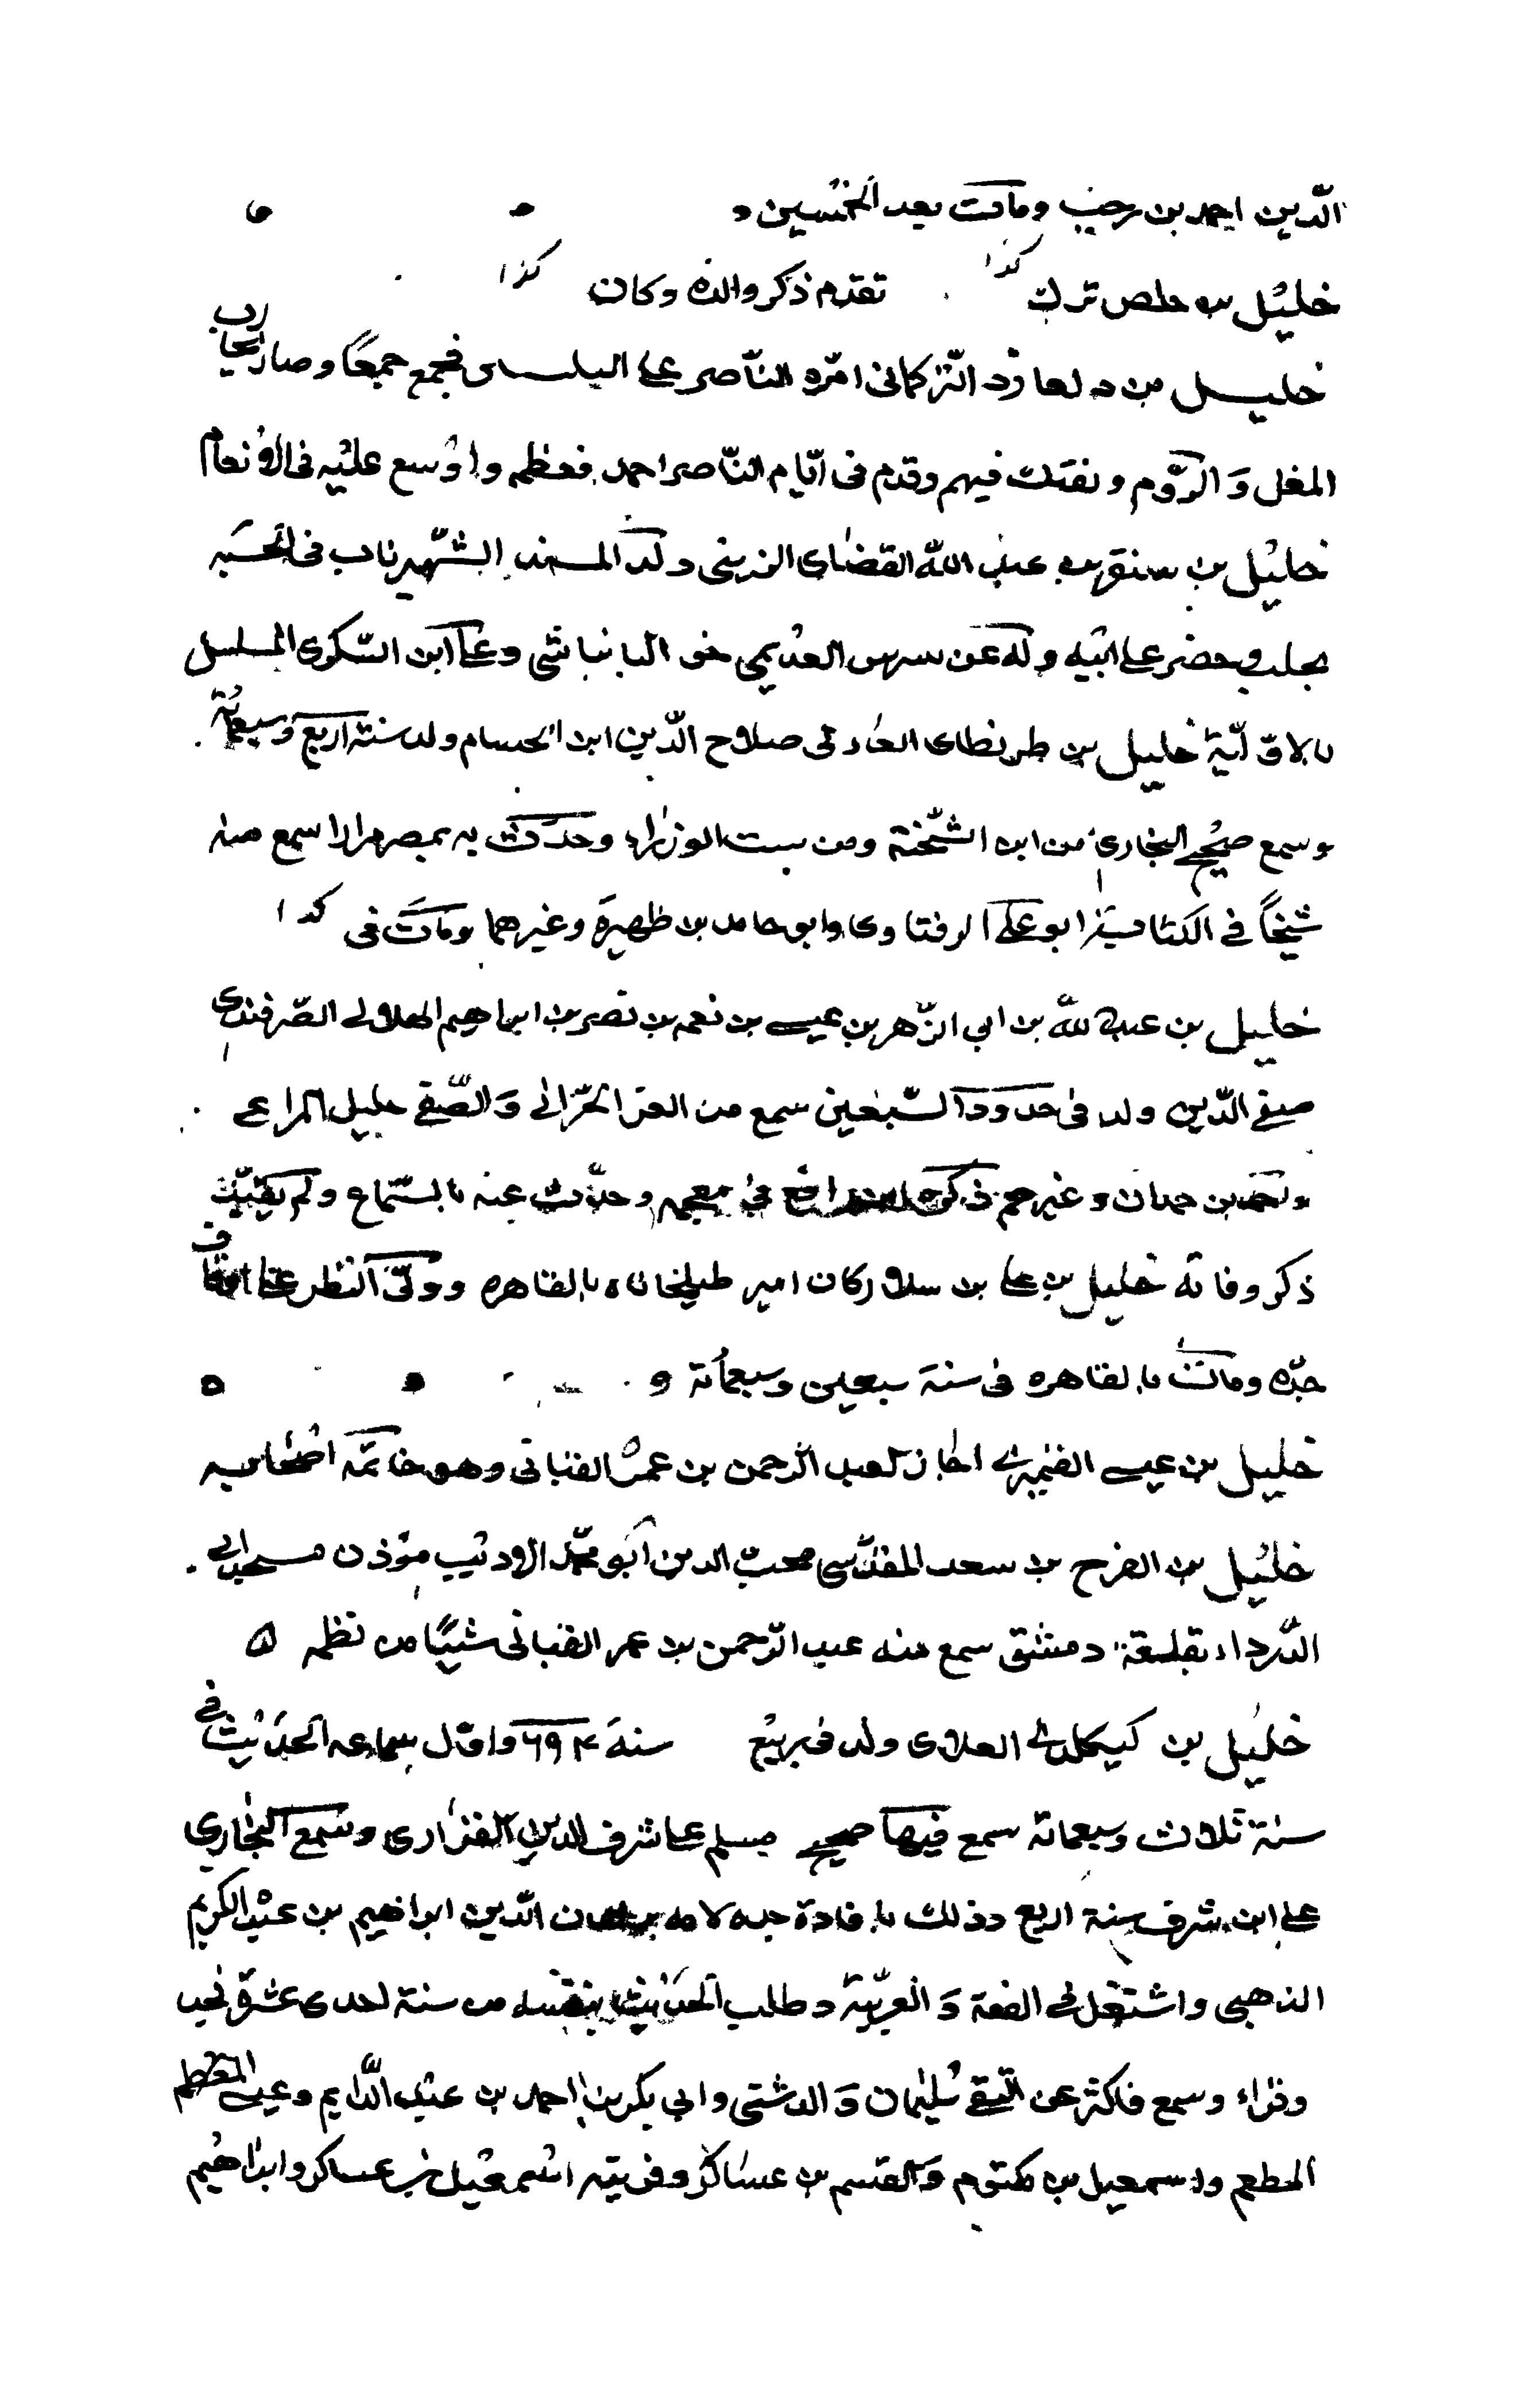 الدّين احمد بن رجب ومات بعد الخمسين
خليل بن خاص ترك كذا تقدم ذكر والده وكان كذا
خليل بن دلغادر التركمانى امّره الناصر على فجمع جمعًا وصار يحارب
المغل والرّوم وفتك فيهم وقدم فى ايّام النّاصر احمد فعظم واوسع عليه فى الانعام
خليل بن سنقر بن عبد الله القضاى الزينى ولد المسند الشّهير ناب فى الحسبه
بحلب وحضر على ابيه وله عن سنقر العديمى جزء البانياسى وعلى ابن السّكرى المسلسل
بالاوّليّة خليل بن طرنطاى العادلى صلاح الدّين ابن الحسام ولد سنة اربع وسبعمائة
وسمع صحيح البخارى من ابن الشّحنة ومن ست الوزراء وحدّث به بمصر مرارا سمع منه
شيخنا فى الكتاب ابو على الرفتاوى وابو حامد بن ظهيرة وغيرهما ومات فى كذا
خليل بن عبد الله بن ابى الزّهر بن عيسى بن نعمه بن نصر بن ابراهيم الهلالى الصّرفندى
صفى الدّين ولد فى حدود السّبعين سمع من العز الحرّانى والصّفى خليل المراغى
وبن حمدان وغيرهم ذكره ابن رافع فى معجمه وحدّث عنه بالسّماع ولم يثبت
ذكر وفاته خليل بن على بن سلار كان امير طبلخاناه بالقاهره وولّى النظر على اوقاف
جدّه ومات بالقاهره فى سنة سبعين وسبعمائة
خليل بن عيسى القيمرى اجاز لعبد الرحمن بن عمر القبانى وهو خاتمة اصحابه
خليل بن الفرح بن سعد المقدّسى محبّ الدين ابو محمّد الاديب مؤذن مسجد ابى
الدّرداء بقلعة دمشق سمع منه عبد الرّحمن بن عمر القبانى شيئًا من نظمه ه
خليل بن كيكلدى العلاى ولد فى ربيع سنة ٦٩٤ واوّل سماعه الحديث فى
سنة ثلاث وسبعمائة سمع فيها صحيح مسلم على شرف الدين الفزارى وسمع البخارى
على ابن مشرف سنة اربع وذلك بافادة جده لامه برهان الدّين ابراهيم بن عبد الكريم
الذهبى واشتغل فى الفقه والعربيّة وطلب الحديث بنفسه من سنة احدى عشرة فجد
وقراء وسمع فاكثر عن التقى سليمان والدشتى وابى بكر بن احمد بن عبد الدّايم وعيسى المطعم
المطعم واسمعيل بن مكتوم والقسم بن عساكر وقريبه اسمعيل بن عساكر وابراهيم